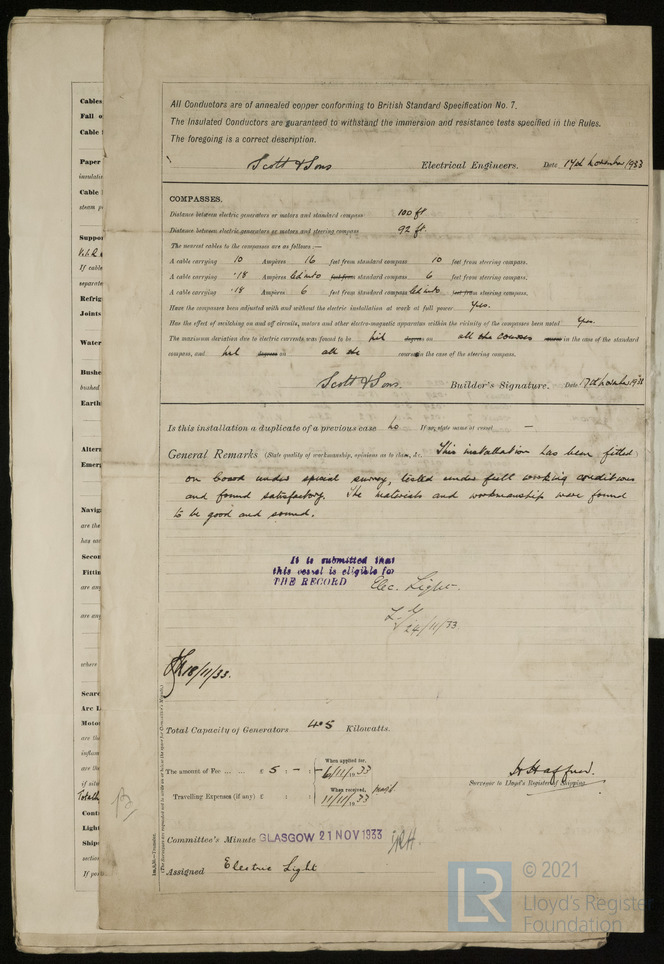 Cables
Fall o
Cable
Paper
insulati
Cable
steam p
Suppo
If cable
separate
Refrig
Joints
Water
Bushe
bushed
Earth
Alter
Emer
Navig
are the
has no
Secon
Fittin
are any
are any
where
Searc
Arc L
Motor
are the
inflam
are the
if situ
Cont
Light
Ships
section
If pos
All Conductors are of annealed copper conforming to British Standard Specification No. 7.
The Insulated Conductors are guaranteed to withstand the immersion and resistance tests specified in the Rules.
The foregoing is a correct description.
Scott & Sons Electrical Engineers. Date 17th November 1933
COMPASSES.
Distance between electric generators or motors and standard compass 100 ft
Distance between electric generators or motors and steering compass 92 ft.
The nearest cables to the compasses are as follows :—
A cable carrying 10 Ampères 16 feet from standard compass 10 feet from steering compass.
A cable carrying .18 Ampères led into feet from standard compass 6 feet from steering compass.
A cable carrying .18 Ampères 6 feet from standard compass led into feet from steering compass.
Have the compasses been adjusted with and without the electric installation at work at full power Yes.
Has the effect of switching on and off circuits, motors and other electro-magnetic apparatus within the vicinity of the compasses been noted Yes.
The maximum deviation due to electric currents was found to be nil degrees on all the courses course in the case of the standard
compass, and nil degrees on all the course in the case of the steering compass.
Scott & Sons. Builder's Signature. Date 17th November 1933
Is this installation a duplicate of a previous case no If so, state name of vessel —
General Remarks (State quality of workmanship, opinions as to class, &c. This installation has been fitted
on board under special survey, tested under full working conditions
and found satisfactory. The materials and workmanship were found
to be good and sound.
It is submitted that
this vessel is eligible for
THE RECORD Elec. Light.
24/11/33
18/11/33.
Total Capacity of Generators 4.5 Kilowatts.
The amount of Fee ... ... £ 5 : — : — When applied for, 6/11/1933
Travelling Expenses (if any) £ : : When received, 11/11/1933
Surveyor to Lloyd's Register of Shipping
Committee's Minute GLASGOW 21 NOV 1933
Assigned Electric Light
LR
© 2021
Lloyd's Register
Foundation